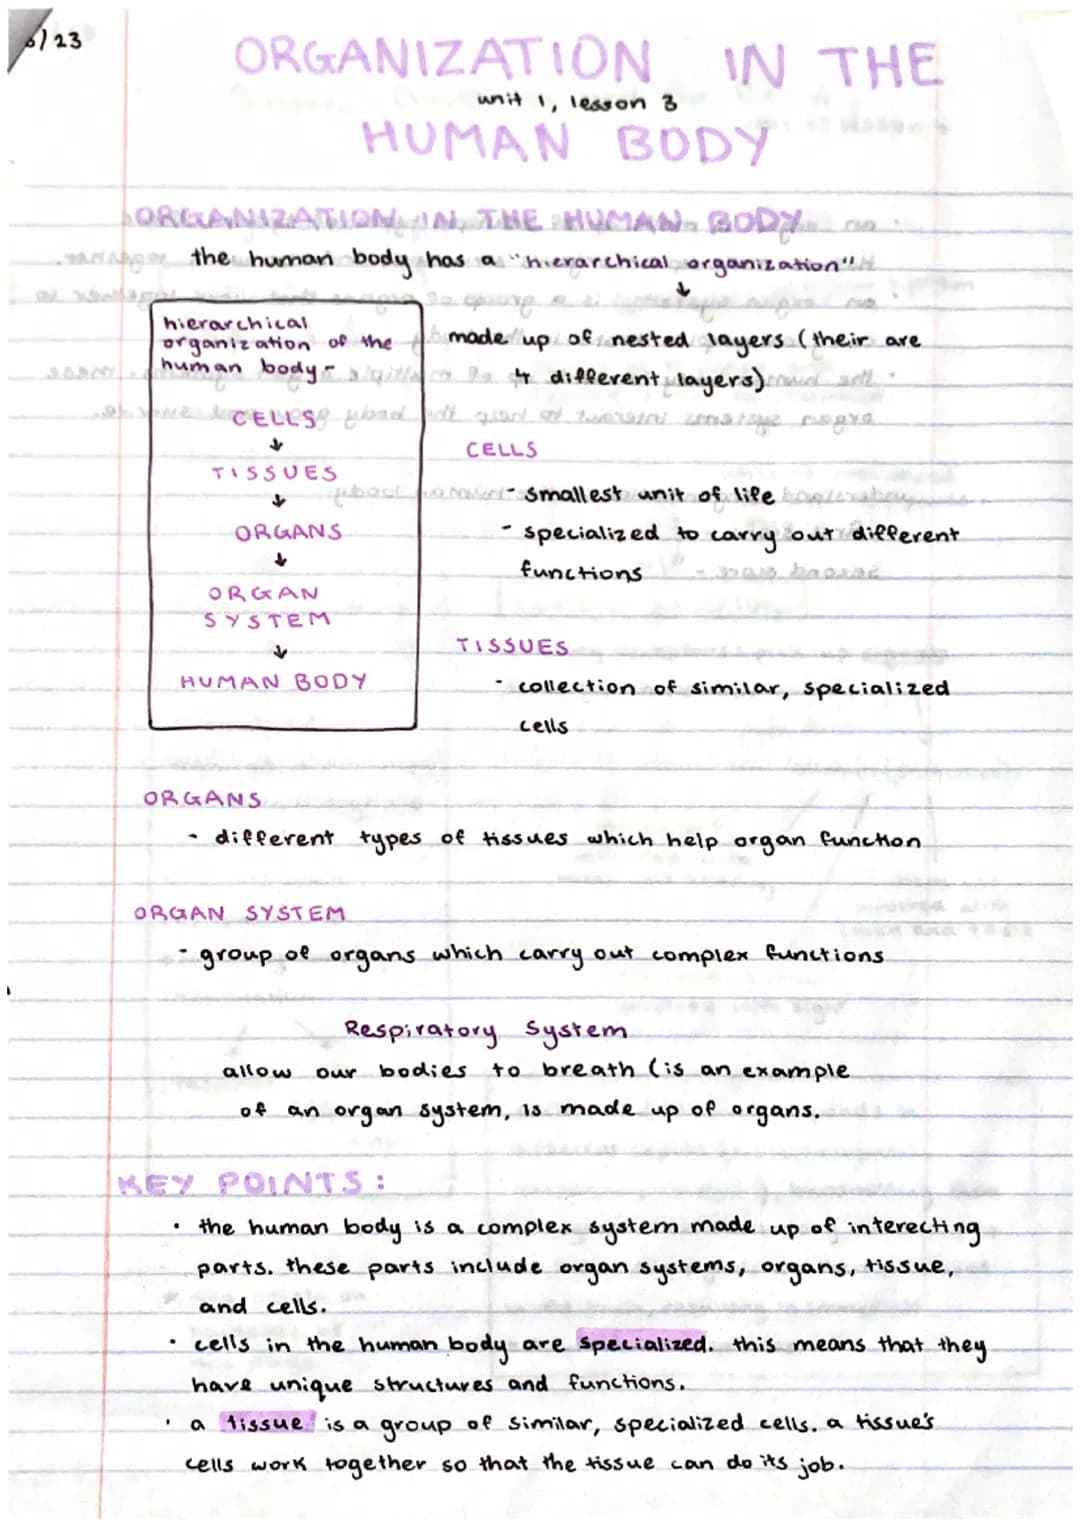 /23
ORGANIZATION IN THE
unit 1, lesson 3
HUMAN BODY
ORGANIZATION IN THE HUMAN BODY
the human body has a "hierarchical organization"
↓
hierarchical
organization of the
human body-
CELLS
↓
TISSUES
↓
ORGANS
↓
ORGAN
SYSTEM
↓
HUMAN BODY
made up of nested layers (their are
4 different layers)
CELLS
- smallest unit of life
- specialized to carry out different
functions
TISSUES
- collection of similar, specialized
cells
ORGANS
- different types of tissues which help organ function
ORGAN SYSTEM
- group of organs which carry out complex functions
Respiratory System
allow our bodies to breath (is an example
of an organ system, is made up of organs.
KEY POINTS:
• the human body is a complex system made up of interecting
parts. these parts include organ systems, organs, tissue,
and cells.
• cells in the human body are specialized. this means that they
have unique structures and functions.
• a tissue is a group of similar, specialized cells. a tissue's
cells work together so that the tissue can do its job.